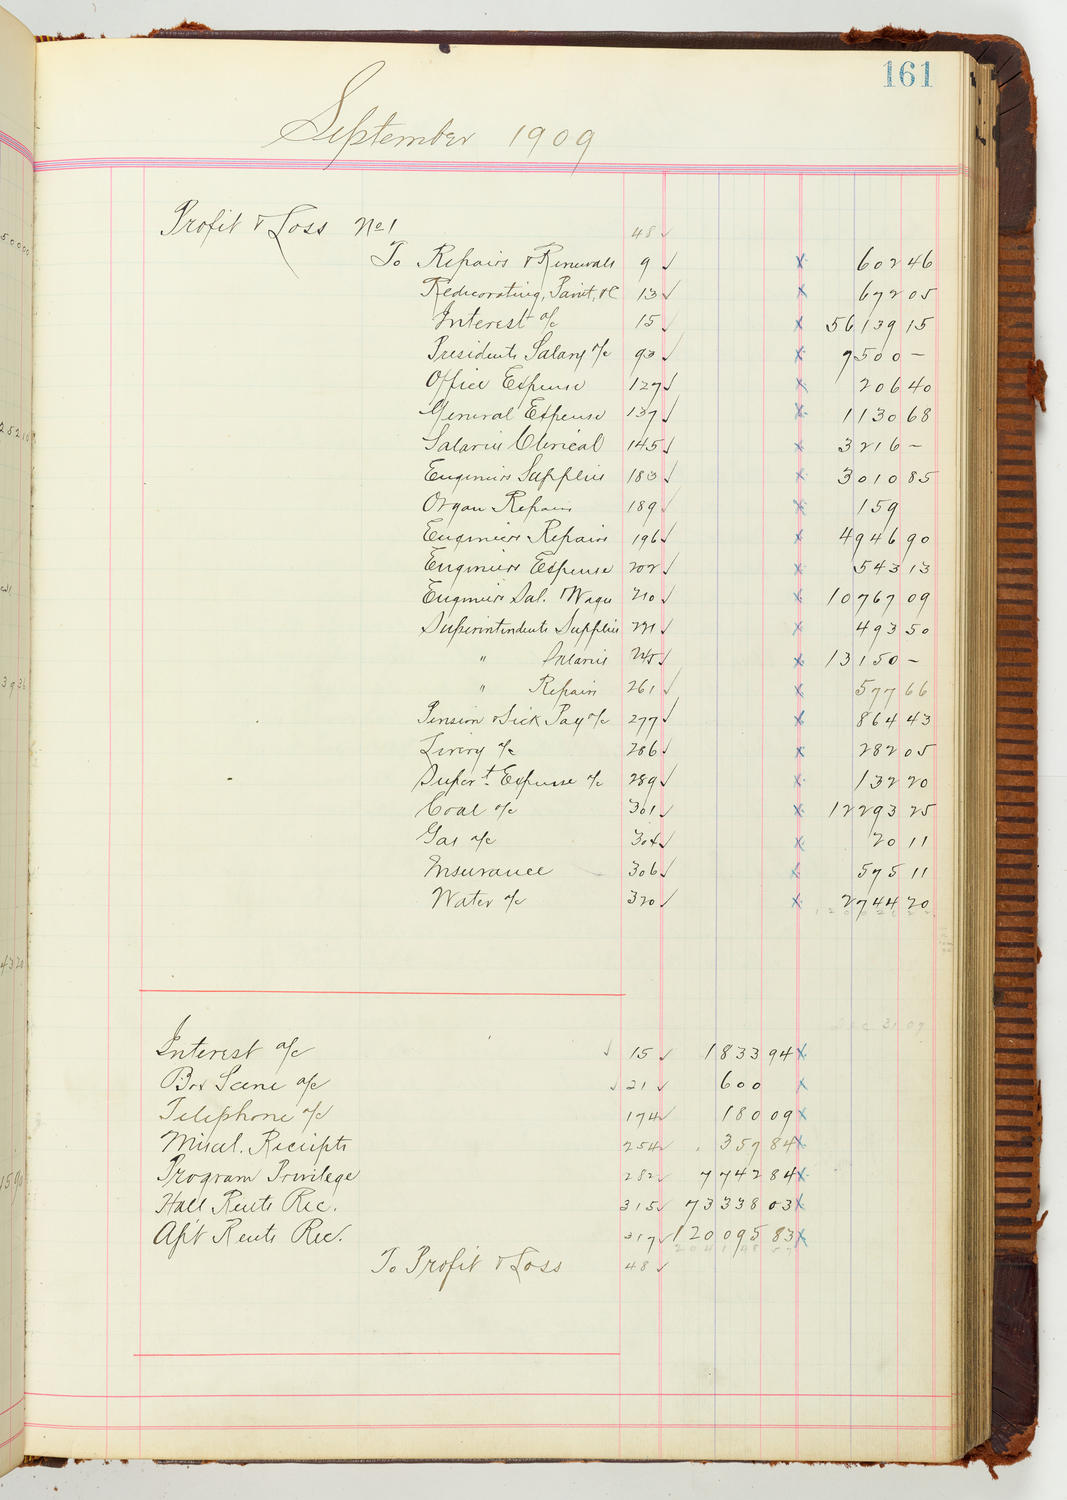 161
September 1909
Profit & Loss No 1 48 ✓
To Repairs & Renewals 9 ✓ x 602 46
Redecorating, Paint, &c 13 ✓ x 672 05
Interest a/c 15 ✓ x 56139 15
Presidents Salary a/c 93 ✓ x 7500 –
Office Expense 127 ✓ x 206 40
General Expense 137 ✓ x 1130 68
Salaries Clerical 145 ✓ x 3216 –
Engineers Supplies 183 ✓ x 3010 85
Organ Repairs 189 ✓ x 159
Engineers Repairs 196 ✓ x 4946 90
Engineers Expense 202 ✓ x 543 13
Engineers Sal. & Wages 210 ✓ x 10767 09
Superintendents Supplies 221 ✓ x 493 50
" Salaries 245 ✓ x 13150 –
" Repairs 261 ✓ x 577 66
Pension & Sick Pay a/c 277 ✓ x 864 43
Livery a/c 286 ✓ x 282 05
Supert. Expense a/c 289 ✓ x 132 20
Coal a/c 301 ✓ x 12293 25
Gas a/c 304 ✓ x 20 11
Insurance 306 ✓ x 575 11
Water a/c 320 ✓ x 2744 20
Interest a/c ✓ 15 ✓ 1833 94 x
Box Scene a/c ✓ 21 ✓ 600 x
Telephone a/c 174 ✓ 180 09 x
Miscl. Receipts 254 ✓ 357 84 x
Program Privilege 282 ✓ 7742 84 x
Hall Rents Rec. 315 ✓ 73338 03 x
Apt Rents Rec. 317 ✓ 120095 83 x
To Profit & Loss 48 ✓